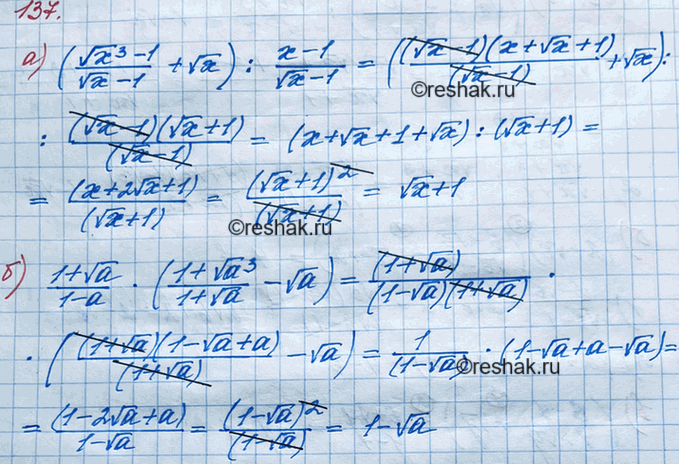 137.
а) (√x³-1/√x-1 + √x) : x-1/√x-1 = ((√x-1)(x+√x+1)/(√x-1) + √x) :
©reshak.ru
: (√x-1)(√x+1)/(√x-1) = (x+√x+1+√x) : (√x+1) =
= (x+2√x+1)/(√x+1) = (√x+1)²/(√x+1) = √x+1
©reshak.ru
б) 1+√a/1-a · (1+√a³/1+√a - √a) = (1+√a)/(1-√a)(1+√a) ·
· ((1+√a)(1-√a+a)/(1+√a) - √a) = 1/(1-√a) · (1-√a+a-√a) =
©reshak.ru
= (1-2√a+a)/1-√a = (1-√a)²/(1-√a) = 1-√a